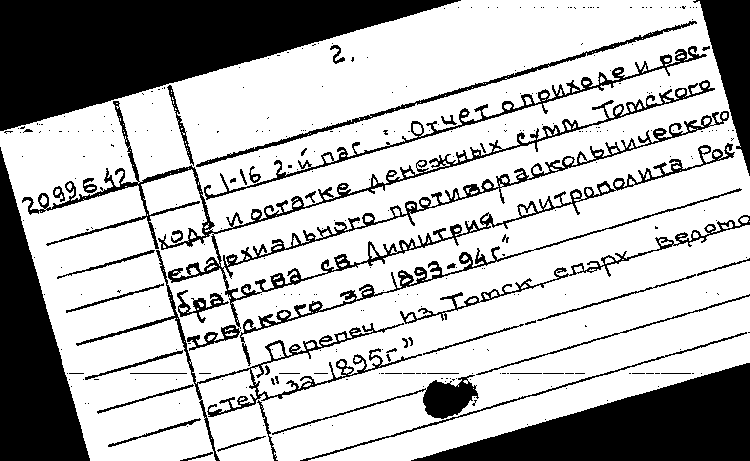 2.
2099.5.42
с 1-16 2-й паг. : „Отчет о приходе и рас-
ходе и остатке денежных сумм Томского
епархиального противораскольнического
братства св. Димитрия, митрополита Рос-
товского за 1893-94г."
„Перепеч. из „Томск. епарх. Ведомо
стей". за 1895г."